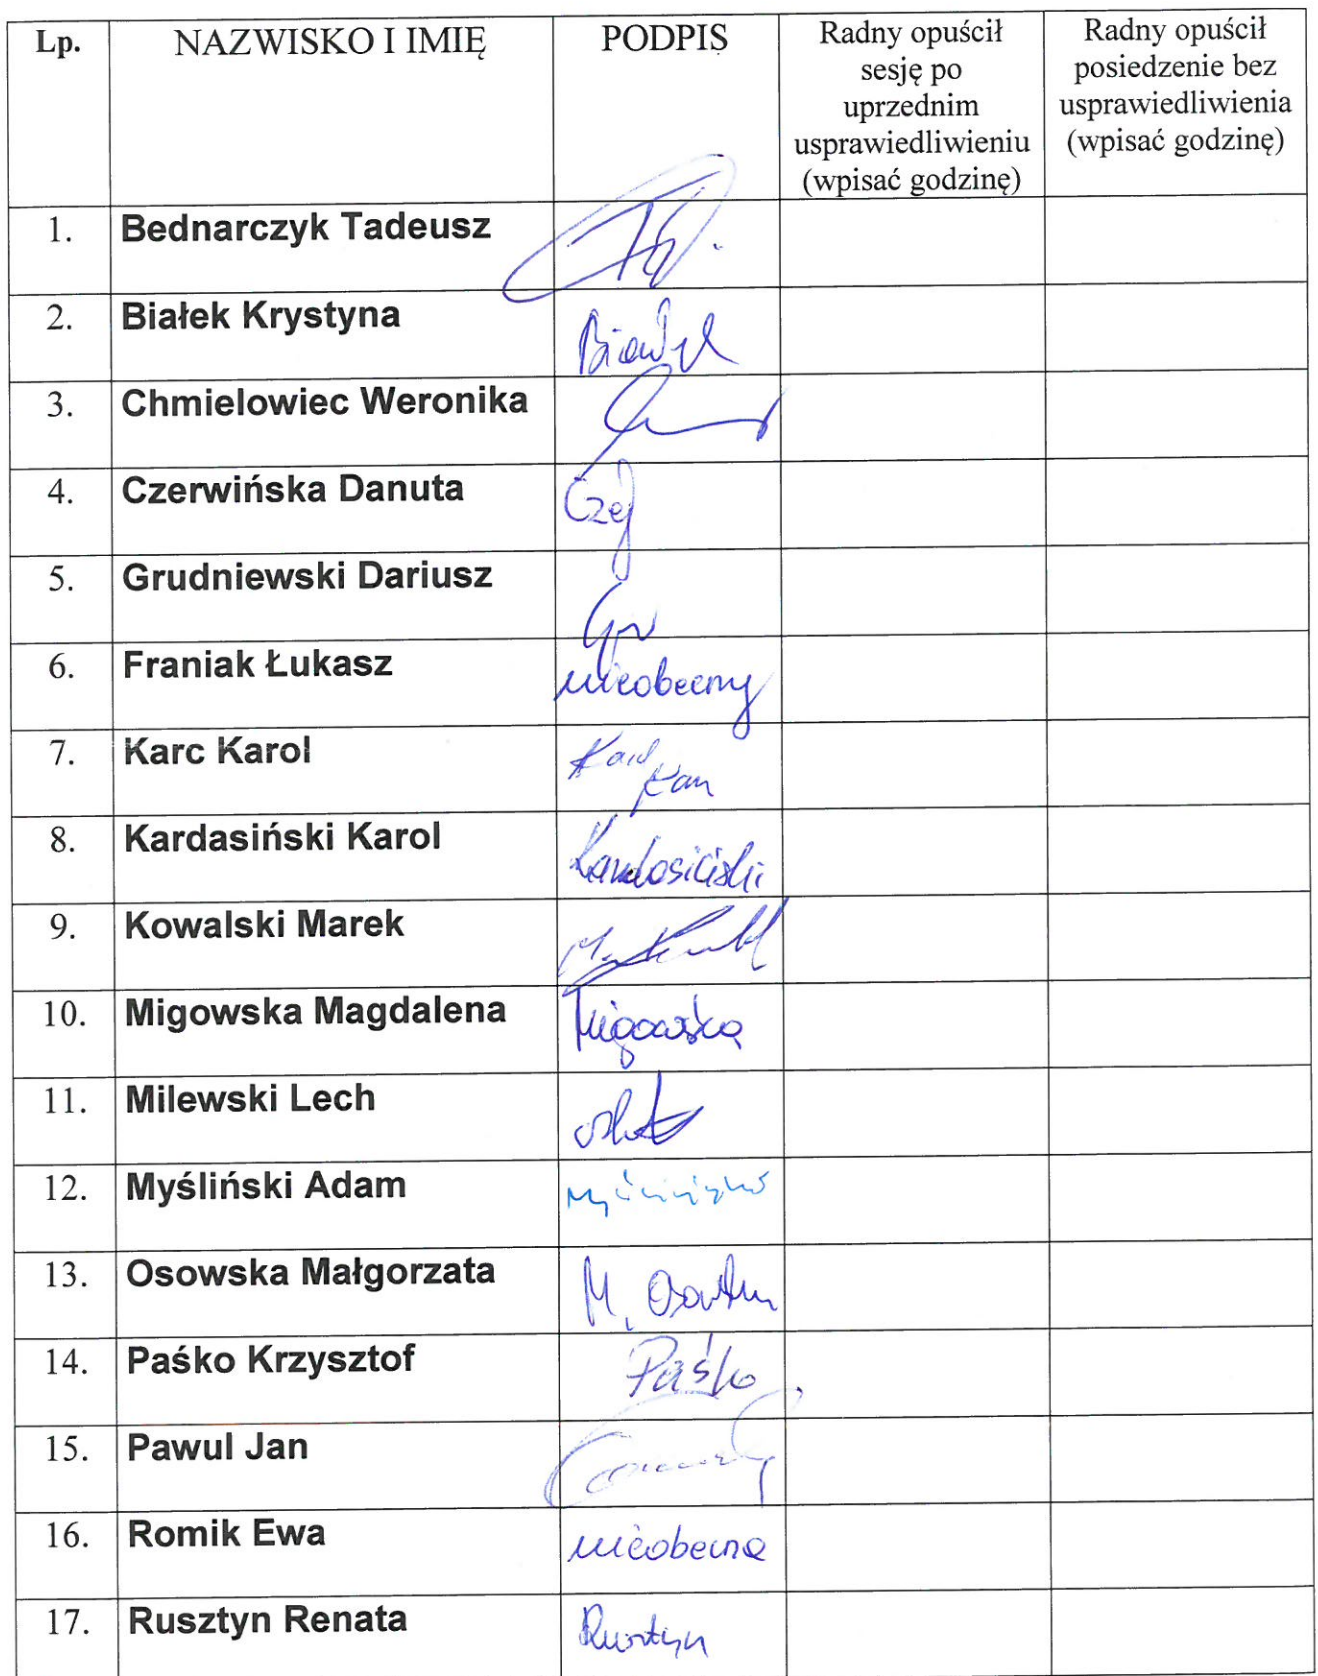 Lp.
NAZWISKO I IMIĘ
PODPIS
Radny opuścił
sesję po
uprzednim
usprawiedliwieniu
(wpisać godzinę)
Radny opuścił
posiedzenie bez
usprawiedliwienia
(wpisać godzinę)
1. Bednarczyk Tadeusz
2. Białek Krystyna Białek
3. Chmielowiec Weronika
4. Czerwińska Danuta
5. Grudniewski Dariusz
6. Franiak Łukasz nieobecny
7. Karc Karol Karol
8. Kardasiński Karol Kardasiński
9. Kowalski Marek
10. Migowska Magdalena Migowska
11. Milewski Lech
12. Myśliński Adam
13. Osowska Małgorzata M. Osowska
14. Paśko Krzysztof Paśko
15. Pawul Jan
16. Romik Ewa nieobecna
17. Rusztyn Renata Rusztyn